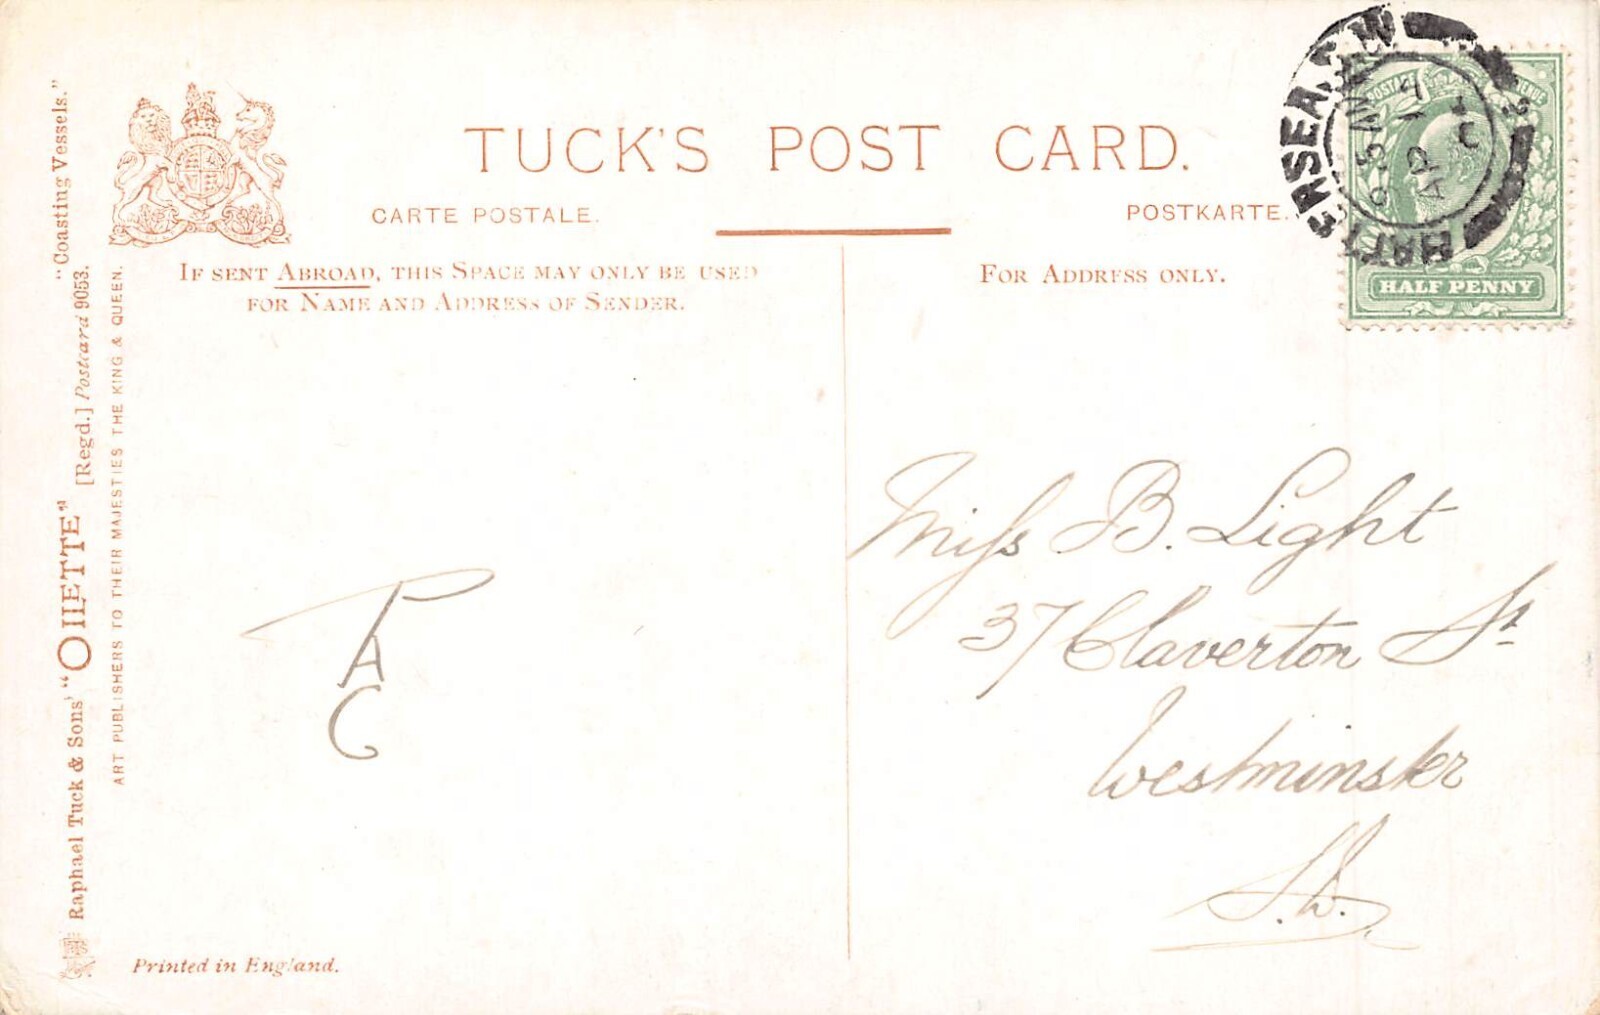 TUCK'S POST CARD.
CARTE POSTALE.
POSTKARTE.
IF SENT ABROAD, THIS SPACE MAY ONLY BE USED
FOR NAME AND ADDRESS OF SENDER.
FOR ADDRESS ONLY.
Raphael Tuck & Sons' "OILETTE" [Regd.] Postcard 9053.
"Coasting Vessels."
ART PUBLISHERS TO THEIR MAJESTIES THE KING & QUEEN.
Printed in England.
BATTERSEA. S.W
AP 17
HALF PENNY
P
A
C
Miss B. Light
37 Claverton St
Westminster
S.W.